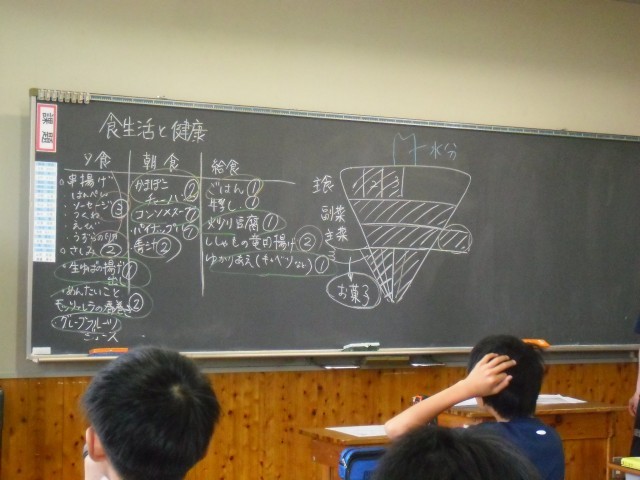 課題
食生活と健康
夕食
朝食
給食
串揚げ
はんぺん
ソーセージ
つくね
えび
うずらの卵
③
さしみ ②
生ゆばの揚げ出し ①
めんたいこと
モッツァレラの春巻き ②
グレープフルーツ
ジュース
かまぼこ
チャーハン ②
コンソメスープ ①
パイナップル ①
青汁 ②
ごはん ①
牛乳 ①
炒り豆腐 ①
ししゃもの竜田揚げ ②
ゆかりあえ(キャベツなど) ①
水分
主食
1 2 3
副菜
主菜
お菓子